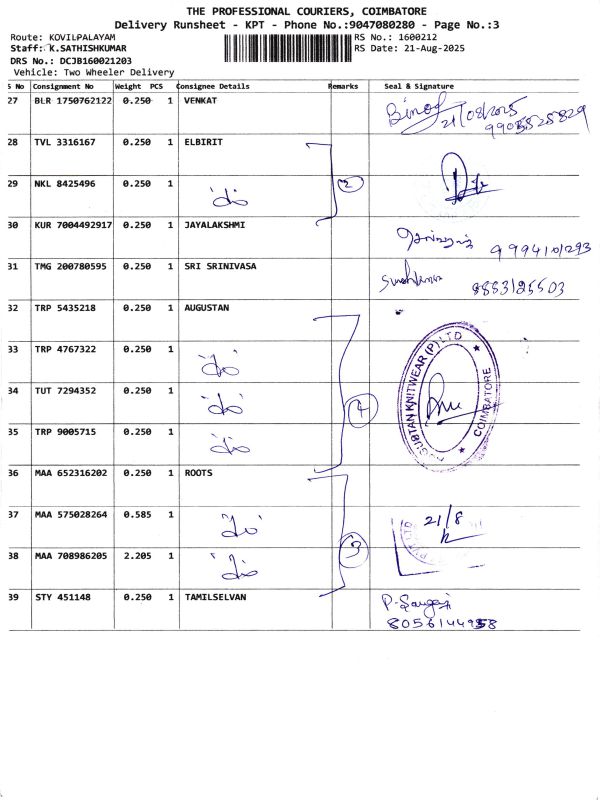 THE PROFESSIONAL COURIERS, COIMBATORE
Delivery Runsheet - KPT - Phone No.:9047080280 - Page No.:3
Route: KOVILPALAYAM RS No.: 1600212
Staff: K.SATHISHKUMAR RS Date: 21-Aug-2025
DRS No.: DCJB160021203
Vehicle: Two Wheeler Delivery
S No Consignment No Weight PCS Consignee Details Remarks Seal & Signature
27 BLR 1750762122 0.250 1 VENKAT 21/08/2025
9905525829
28 TVL 3316167 0.250 1 ELBIRIT
29 NKL 8425496 0.250 1 2
30 KUR 7004492917 0.250 1 JAYALAKSHMI 9994101293
31 TMG 200780595 0.250 1 SRI SRINIVASA 8883125503
32 TRP 5435218 0.250 1 AUGUSTAN
33 TRP 4767322 0.250 1
34 TUT 7294352 0.250 1 4
35 TRP 9005715 0.250 1
KNITWEAR (P) LTD
COIMBATORE
36 MAA 652316202 0.250 1 ROOTS
37 MAA 575028264 0.585 1 21/8
38 MAA 708986205 2.205 1 3
39 STY 451148 0.250 1 TAMILSELVAN
8056144958